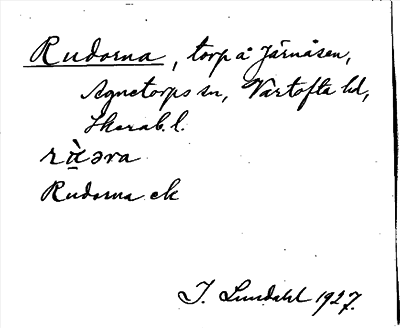 Rudorna, torp å Järnåsen,
Agnetorps sn, Vartofta hd,
Skarab. l.
rɯ̀əra
Rudorna ek
I. Lundahl 1927.